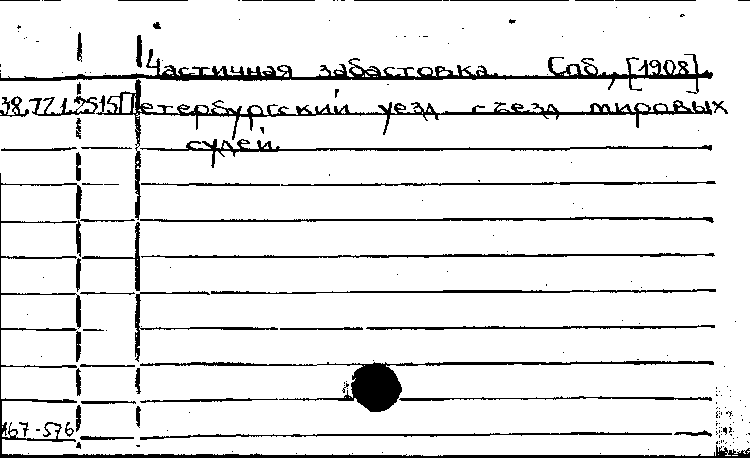 Частичная забастовка. Спб., [1908].
38.77.1.2515 Петербургский уезд. съезд мировых
судей.
167-576